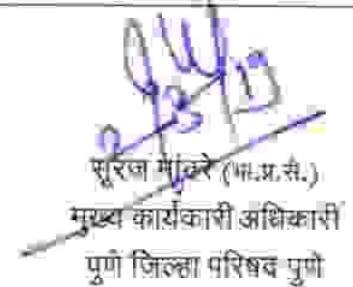 सूरज मांढरे (भा.प्र.से.)
मुख्य कार्यकारी अधिकारी
पुणे जिल्हा परिषद पुणे